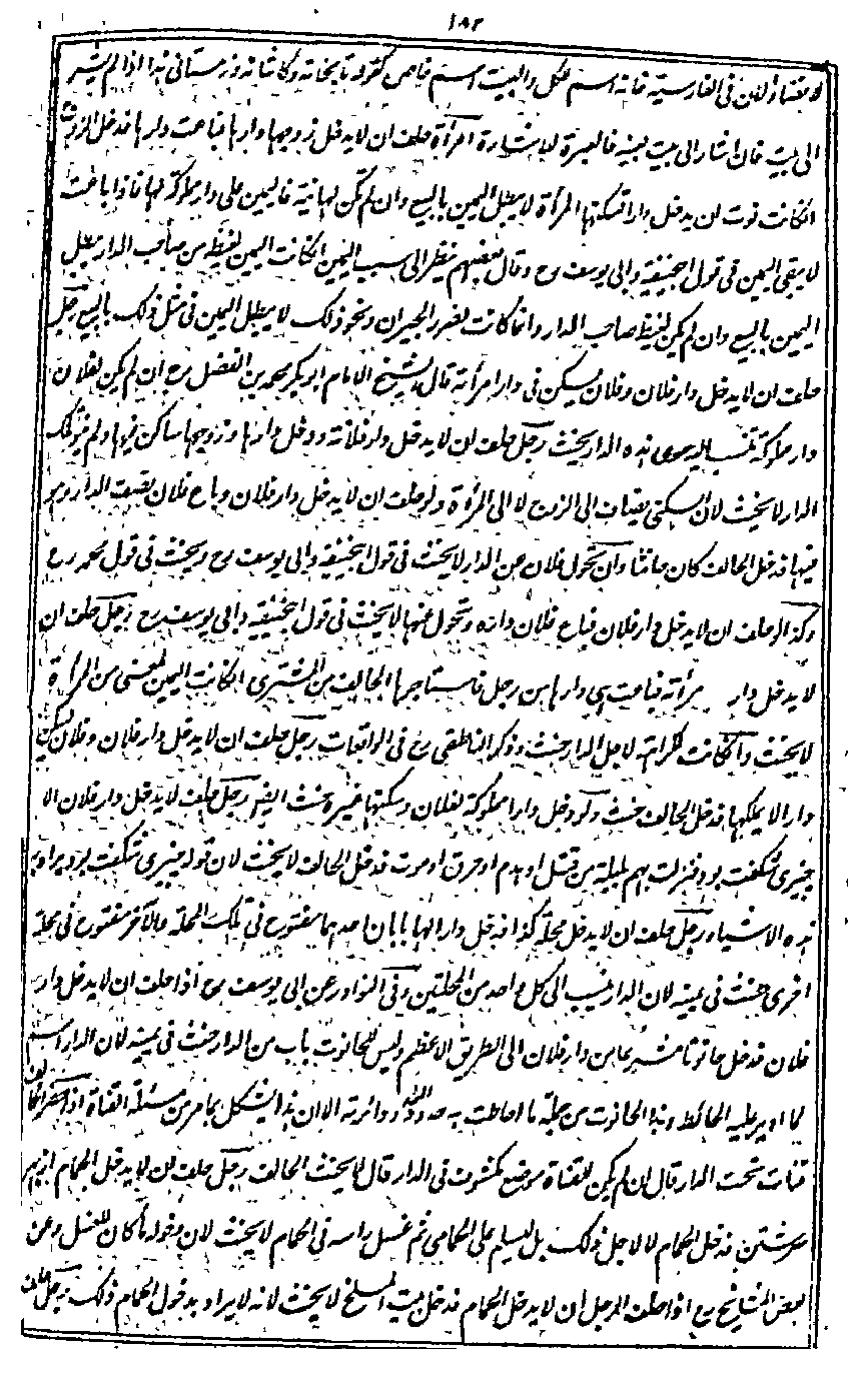 ١٨٢
لا معتاد لان فى الفارسية خانه اسم للكل والبيت اسم خاص كقوله تابخانه وكاشانه وزمستانى هذا اذا لم يشر
الى بيت فان اشار الى بيت بعينه فالعبرة للاشارة امرأة حلفت ان لا يدخل زوجها دارها فباعت دارها فدخل الزوج
انكانت نوت ان يدخل دارا تسكنها المرأة لا يبطل اليمين بالبيع وان لم تكن لها نية فاليمين على دار مملوكة لها فاذا باعت
لا يبقى اليمين فى قول ابيحنيفة وابى يوسف رح وقال بعضهم ينظر الى سبب اليمين انكانت اليمين لغيظ من صاحب الدار يبطل
اليمين بالبيع وان لم يكن لغيظ صاحب الدار وانما كانت لضرر الجيران ونحو ذلك لا يبطل اليمين فى مثل ذلك بالبيع رجل
حلف ان لا يدخل دار فلان وفلان يسكن فى دار امرأته قال الشيخ الامام ابو بكر محمد بن الفضل رح ان لم يكن لفلان
دار مملوكة تنسب اليه سوى هذه الدار يحنث رجل حلف ان لا يدخل دار فلانة ودخل دارها وزوجها ساكن فيها ولم ينو تلك
الدار لا يحنث لان السكنى يضاف الى الزوج لا الى المرأة ولو حلف ان لا يدخل دار فلان وباع فلان نصف الدار وهو
فيها فدخل الحالف كان حانثا وان تحول فلان عن الدار لا يحنث فى قول ابيحنيفة وابى يوسف رح ويحنث فى قول محمد رح
وكذا لو حلف ان لا يدخل دار فلان فباع فلان داره وتحول عنها لا يحنث فى قول ابيحنيفة وابى يوسف رح رجل حلف ان
لا يدخل دار مرأته فباعت هى دارها من رجل فاستاجرها الحالف من المشترى انكانت اليمين لمعنى من المرأة
لا يحنث وانكانت لكراهة لاجل الدار حنث وذكر الناطفى رح فى الواقعات رجل حلف ان لا يدخل دار فلان وفلان يسكن
دارا لا يملكها فدخل الحالف حنث ولو دخل دارا مملوكة لفلان وسكنها غيره حنث ايضا رجل حلف لا يدخل دار فلان الا
چيزى شگفت بود فنزلت بهم بلية من قتل او هدم او حرق او موت فدخل الحالف لا يحنث لان قوله چيزى شگفت بود يراد به
هذه الاشياء رجل حلف ان لا يدخل محلة كذا فدخل دارا لها بابان احدهما مفتوح فى تلك المحلة والآخر مفتوح فى محلة
اخرى حنث فى يمينه لان الدار ينسب الى كل واحد من المحلتين وفى النوادر عن ابى يوسف رح اذا حلف ان لا يدخل دار
فلان فدخل حانوتا مشرعا من دار فلان الى الطريق الاعظم وليس للحانوت باب من الدار حنث فى يمينه لان الدار اسم
لما ادير عليه الحائط وهذا الحانوت من جملة ما احاطت به حدود الدار ودائرته الا ان هذا يشكل بما مر من مسئلة القناة اذا حفر
قناة تحت الدار قال ان لم يكن للقناة موضع مكشوف فى الدار قال لا يحنث الحالف رجل حلف ان لا يدخل الحمام از بهر
سر شستن فدخل الحمام لا لاجل ذلك بل ليسلم على الحمامى ثم غسل راسه فى الحمام لا يحنث لان دخوله ما كان للغسل وعن
بعض المشايخ رح اذا حلف الرجل ان لا يدخل الحمام فدخل بيت المسلخ لا يحنث لانه لا يراد بدخول الحمام ذلك رجل حلف